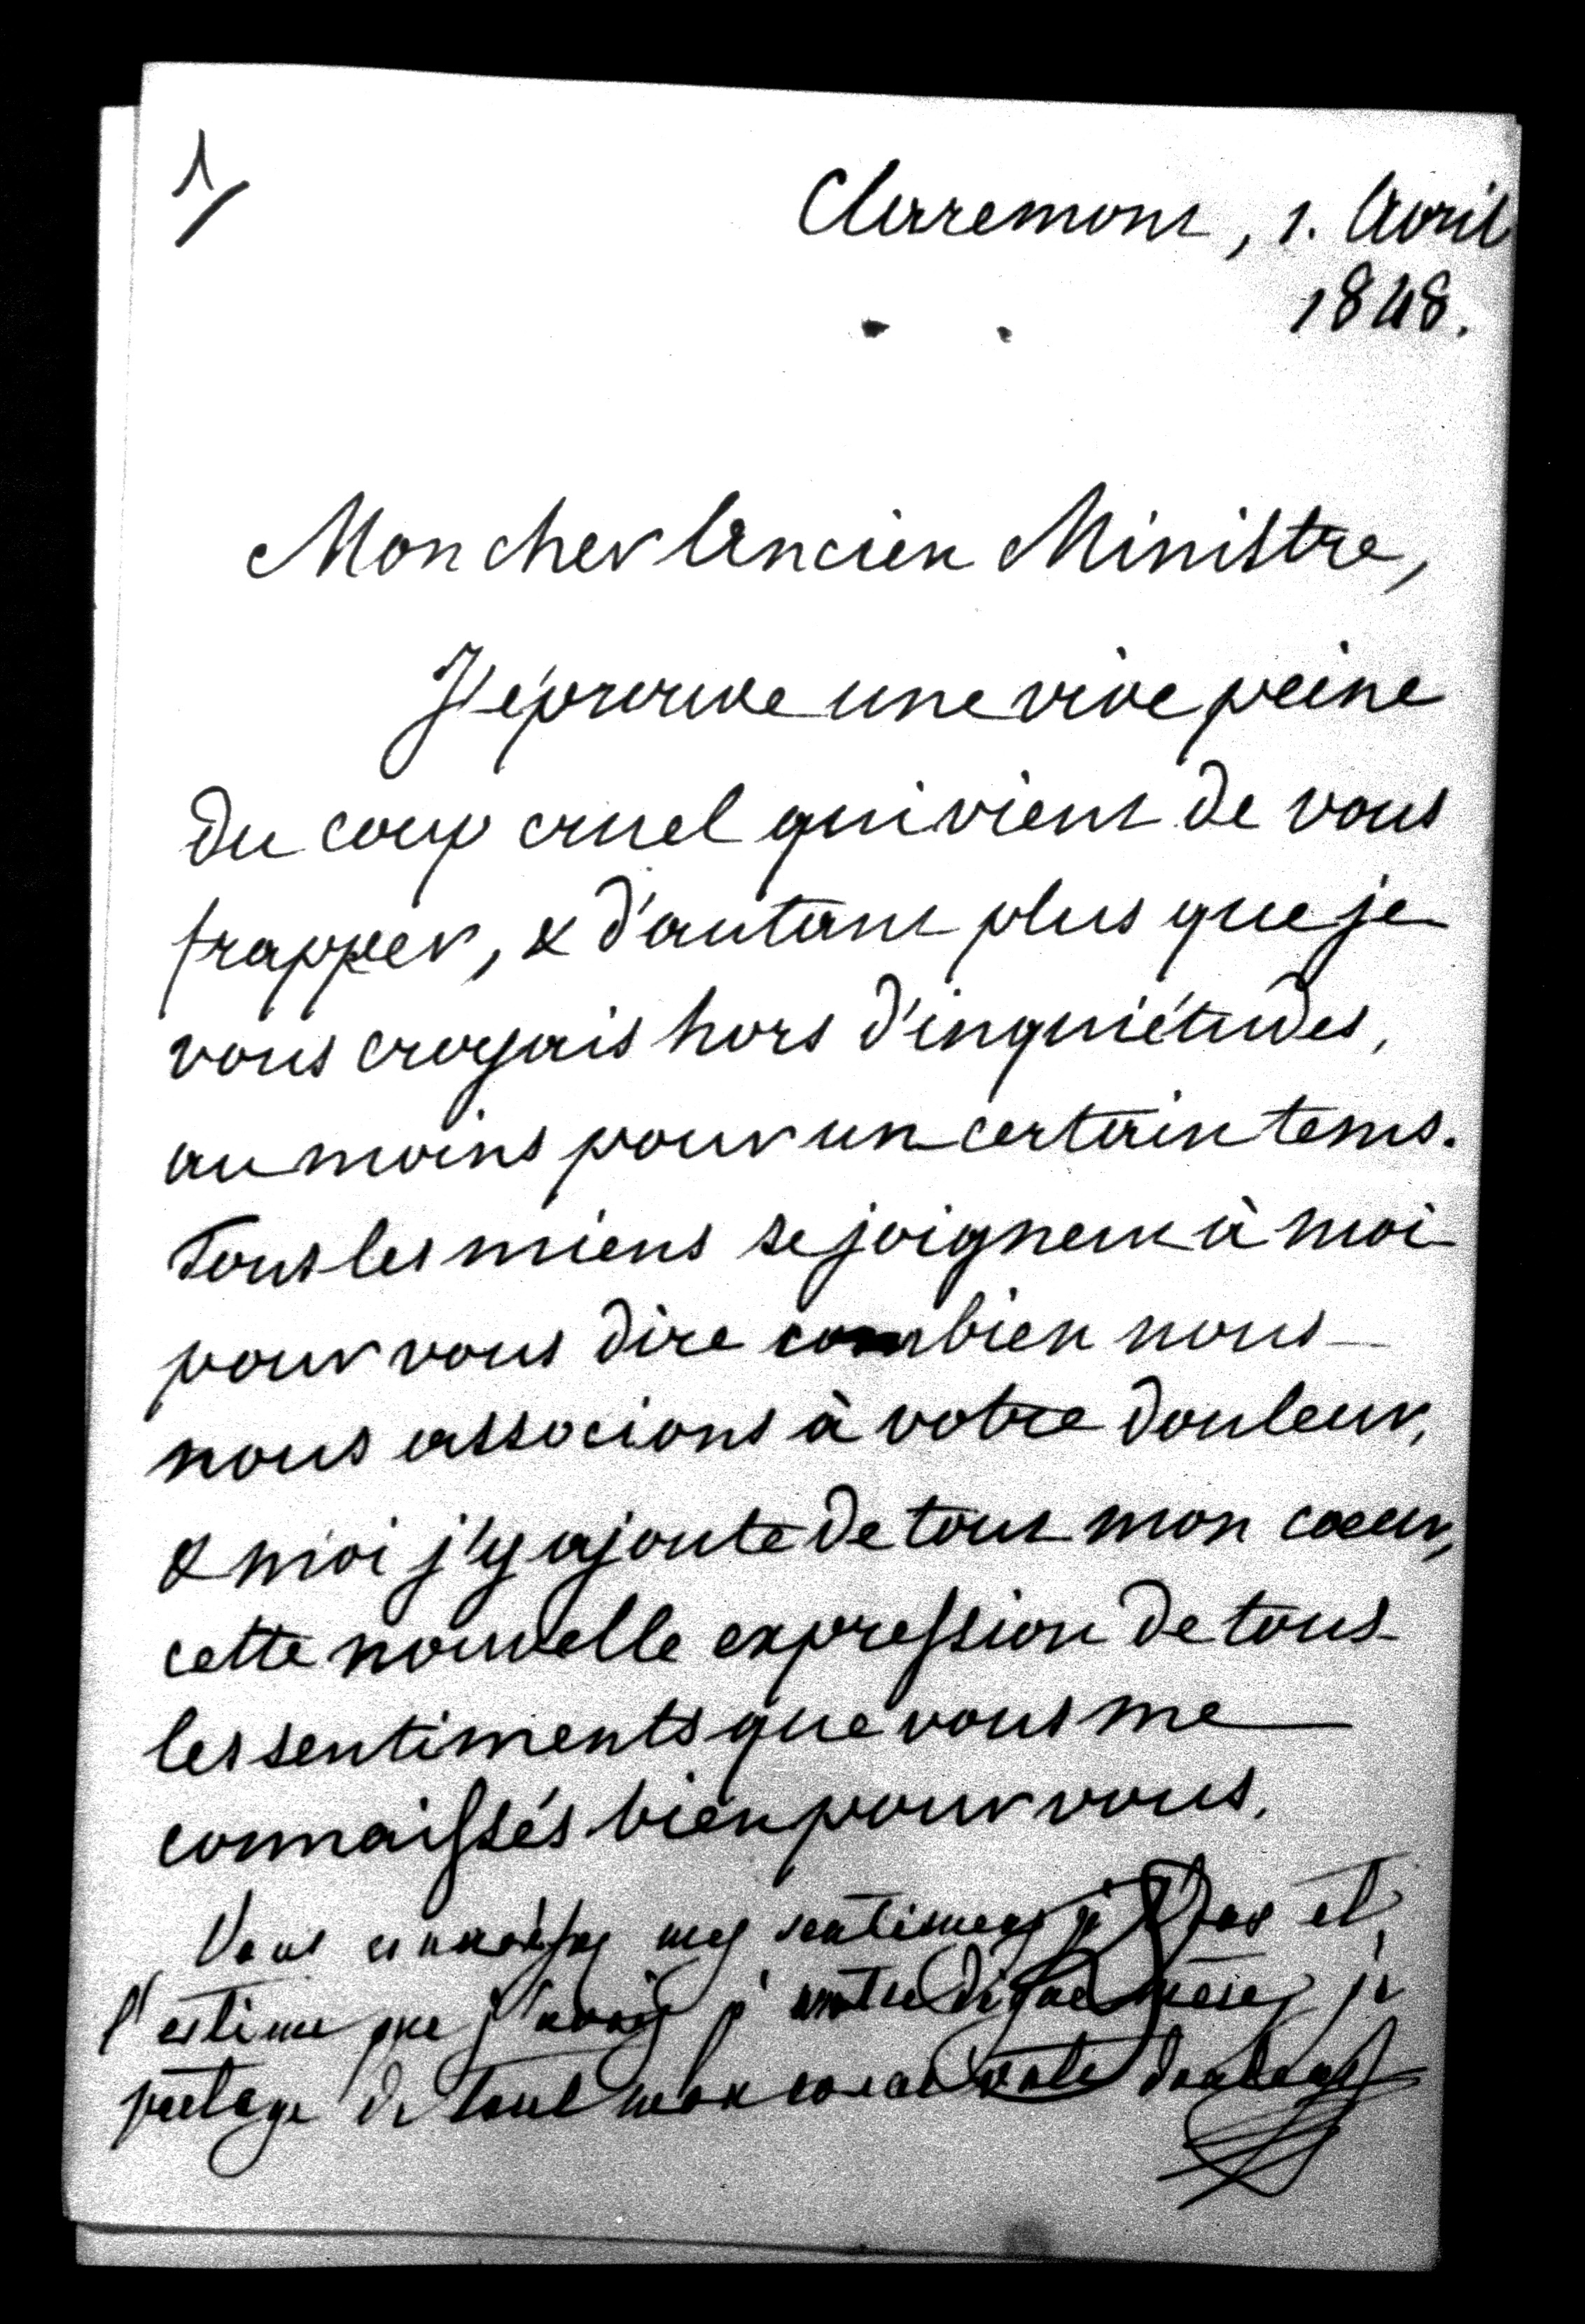 1/
Claremont, 1. Avril
1848.
Mon cher Ancien Ministre,
J'éprouve une vive peine
du coup cruel qui vient de vous
frapper, & d'autant plus que je
vous croyais hors d'inquiétudes,
au moins pour un certain tems.
Tous les miens se joignent à moi
pour vous dire combien nous
nous associons à votre douleur,
& moi j'y ajoute de tout mon coeur,
cette nouvelle expression de tous
les sentiments que vous me
connaissés bien pour vous.
Vous connaissez mes sentimens pr Vous et
l'estime que j'avais pr votre digne mère, je
partage de tout mon coeur votre douleur